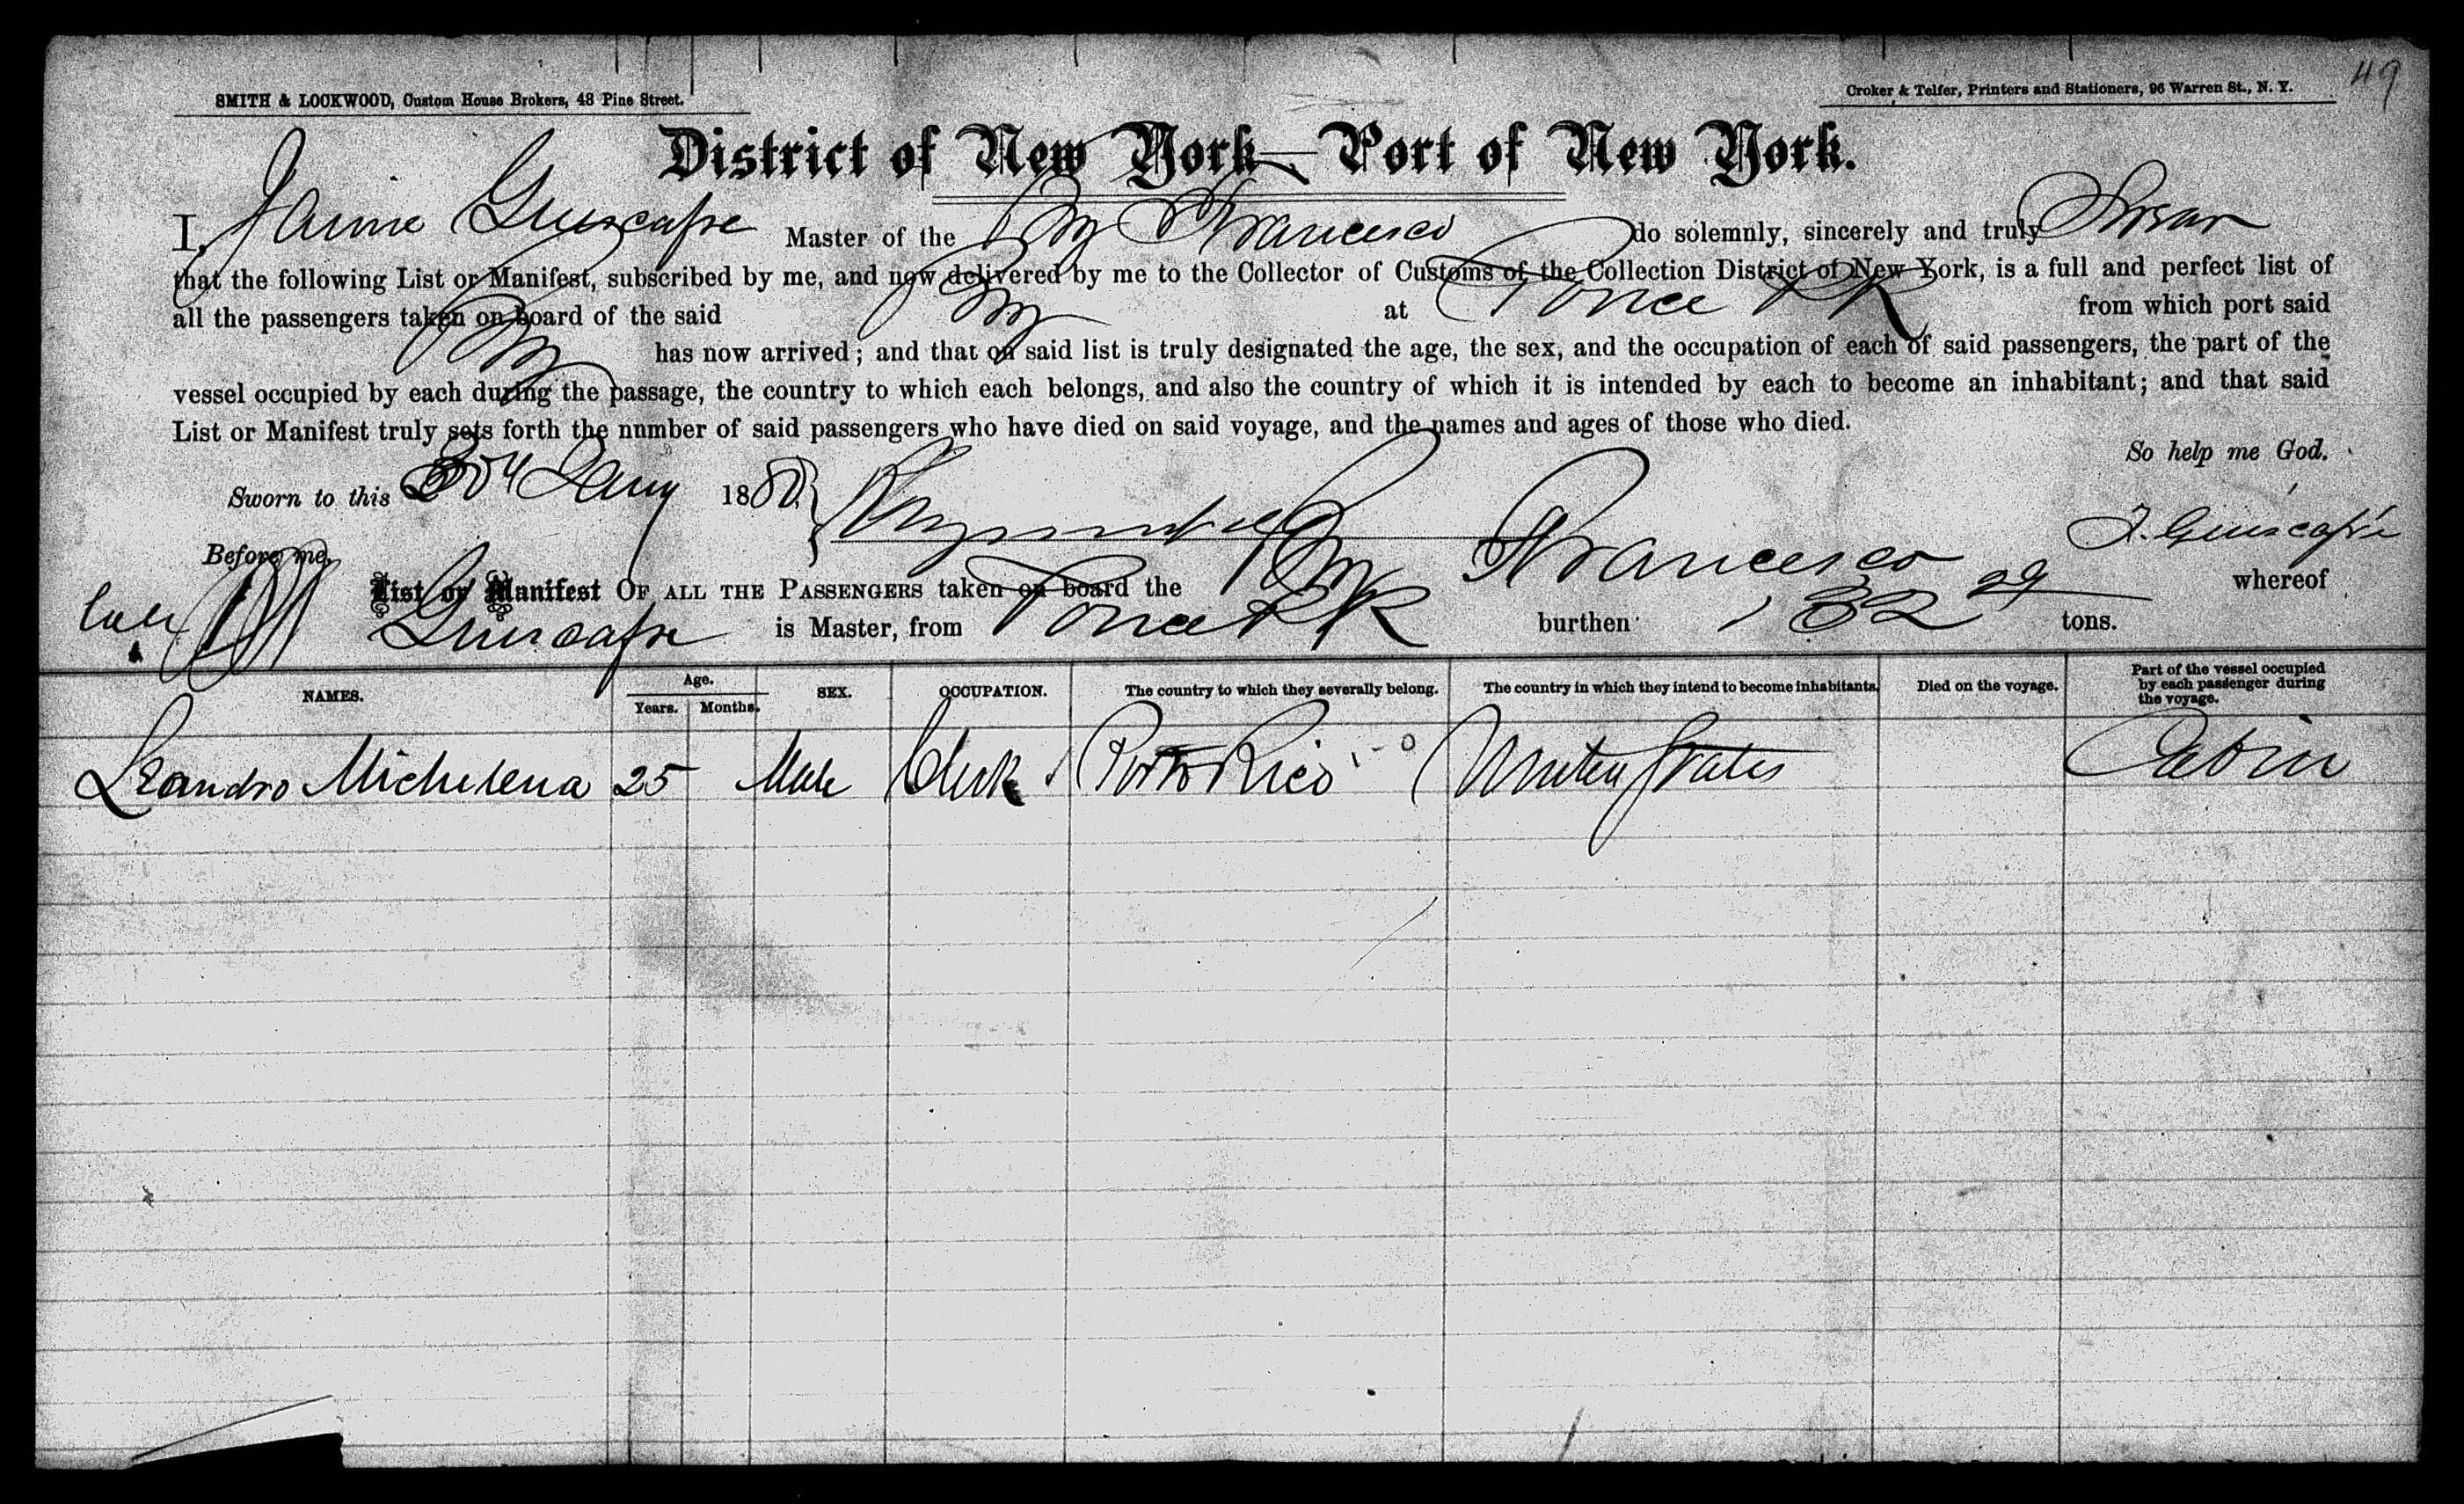 49
SMITH & LOCKWOOD, Custom House Brokers, 48 Pine Street.
Croker & Telfer, Printers and Stationers, 96 Warren St., N. Y.
District of New York—Port of New York.
I, Jaime Guiscafre Master of the Brg Francesco do solemnly, sincerely and truly Swear
that the following List or Manifest, subscribed by me, and now delivered by me to the Collector of Customs of the Collection District of New York, is a full and perfect list of
all the passengers taken on board of the said Brg at Ponce PR from which port said
Brg has now arrived; and that on said list is truly designated the age, the sex, and the occupation of each of said passengers, the part of the
vessel occupied by each during the passage, the country to which each belongs, and also the country of which it is intended by each to become an inhabitant; and that said
List or Manifest truly sets forth the number of said passengers who have died on said voyage, and the names and ages of those who died.
So help me God.
Sworn to this Jany 188
J. Guiscafré
Before me,
List or Manifest OF ALL THE PASSENGERS taken on board the Brg Francesco whereof
Guiscafre is Master, from Ponce PR burthen 132 29 tons.
NAMES. Age. Years. Months. SEX. OCCUPATION. The country to which they severally belong. The country in which they intend to become inhabitants. Died on the voyage. Part of the vessel occupied by each passenger during the voyage.
Leandro Michelena 25 Male Clerk Porto Rico United States Cabin